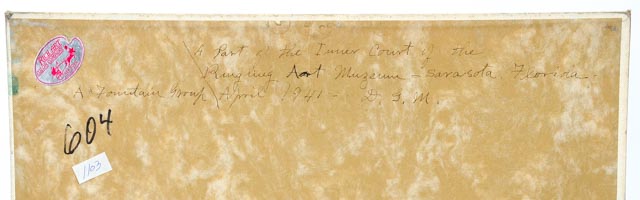 A Part of the Inner Court of the
Ringling Art Museum - Sarasota Florida.
A Fountain Group April 1941 - D. G. M.
604
1103